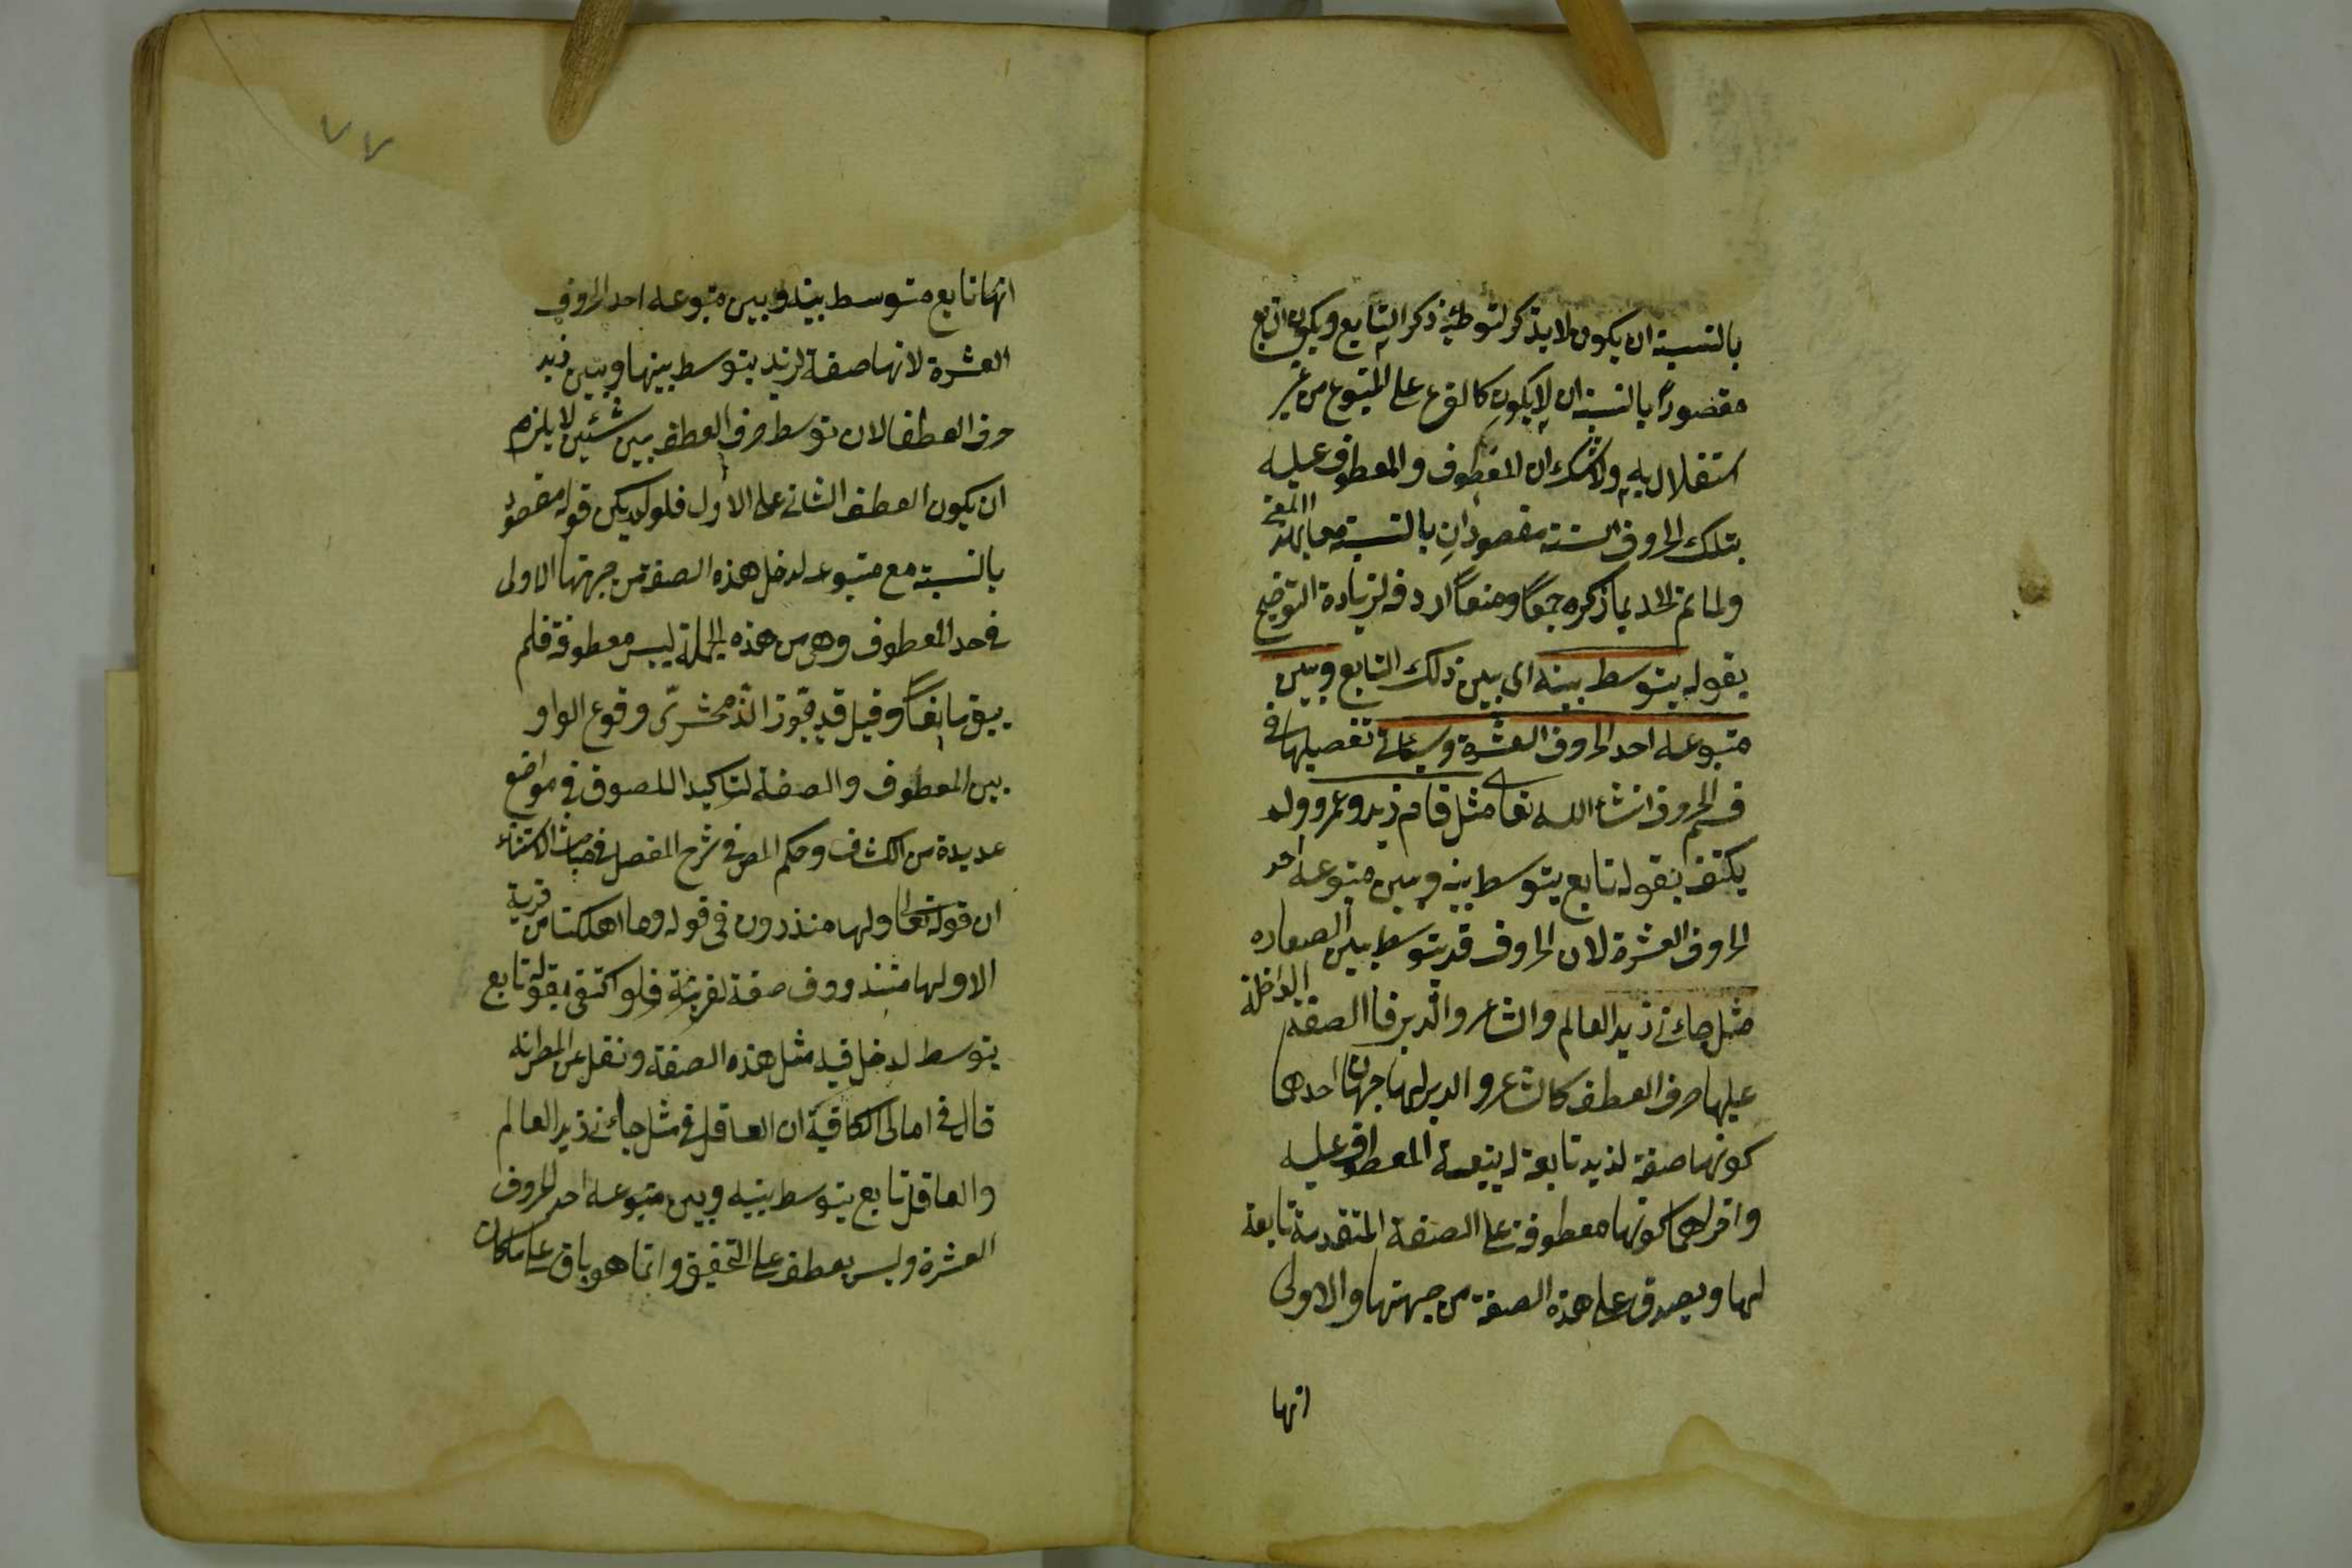 بالنسبة ان يكون لا يذكر لتوطئة ذكر التابع ويكون التابع
مقصوراً بالنسبة ان لا يكون كالفرع على المتبوع من غير
استقلال به ولا شك ان المعطوف والمعطوف عليه
بتلك الحروف الستة مقصودان بالنسبة معا بهذا المعنى
ولما تم الحد بما ذكره جمعاً ومنعاً اردفه لزيادة التوضيح
بقوله يتوسط بينه اى بين ذلك التابع وبين
متبوعه احد الحروف العشرة وسيأتى تفصيلها فى
قسم الحروف انشاء الله تعالى مثل قام زيد وعمرو ولم
يكتف بقوله تابع يتوسط بينه وبين متبوعه احد
الحروف العشرة لان الحروف قد يتوسط بين الصفات
مثل جاءنى زيد العالم والشاعر والدبر فا الصفة الداخلة
عليها حرف العطف كالشاعر والدبر لها جهتان احدهما
كونها صفة لزيد تابعة له بتبعية المعطوف عليه
واخراهما كونها معطوفة على الصفة المتقدمة تابعة
لها ويصدق على هذه الصفة من جهتها والاولى
انها
٧٧
انها تابع متوسط بينه وبين متبوعه احد الحروف
العشرة لانها صفة لزيد يتوسط بينها وبين زيد
حرف العطف لان توسط حرف العطف بين شيئين لا يلزم
ان يكون العطف الثانى على الاول فلو لم يكن قوله مقصود
بالنسبة مع متبوعه لدخل هذه الصفة من جهتها الاولى
فى حد المعطوف وهى من هذه الجملة ليس معطوفة فلم
يبق مانعاً وقيل قد جوز الزمخشرىّ وقوع الواو
بين المعطوف والصفة لتاكيد اللصوق فى مواضع
عديدة من الكشاف وحكم المص فى شرح المفصل فى مباحث الاستثناء
ان قوله تعالى ولها منذرون فى قوله وما اهلكنا من قرية
الا ولها منذرون صفة لقرية فلو اكتفى بقوله تابع
يتوسط لدخل فيه مثل هذه الصفة ونقل عن المص انه
قال فى امالى الكافية ان العاقل فى مثل جاءنى زيد العالم
والعاقل تابع يتوسط بينه وبين متبوعه احد الحروف
العشرة وليس بعطف على التحقيق وانما هو باق على ما كان